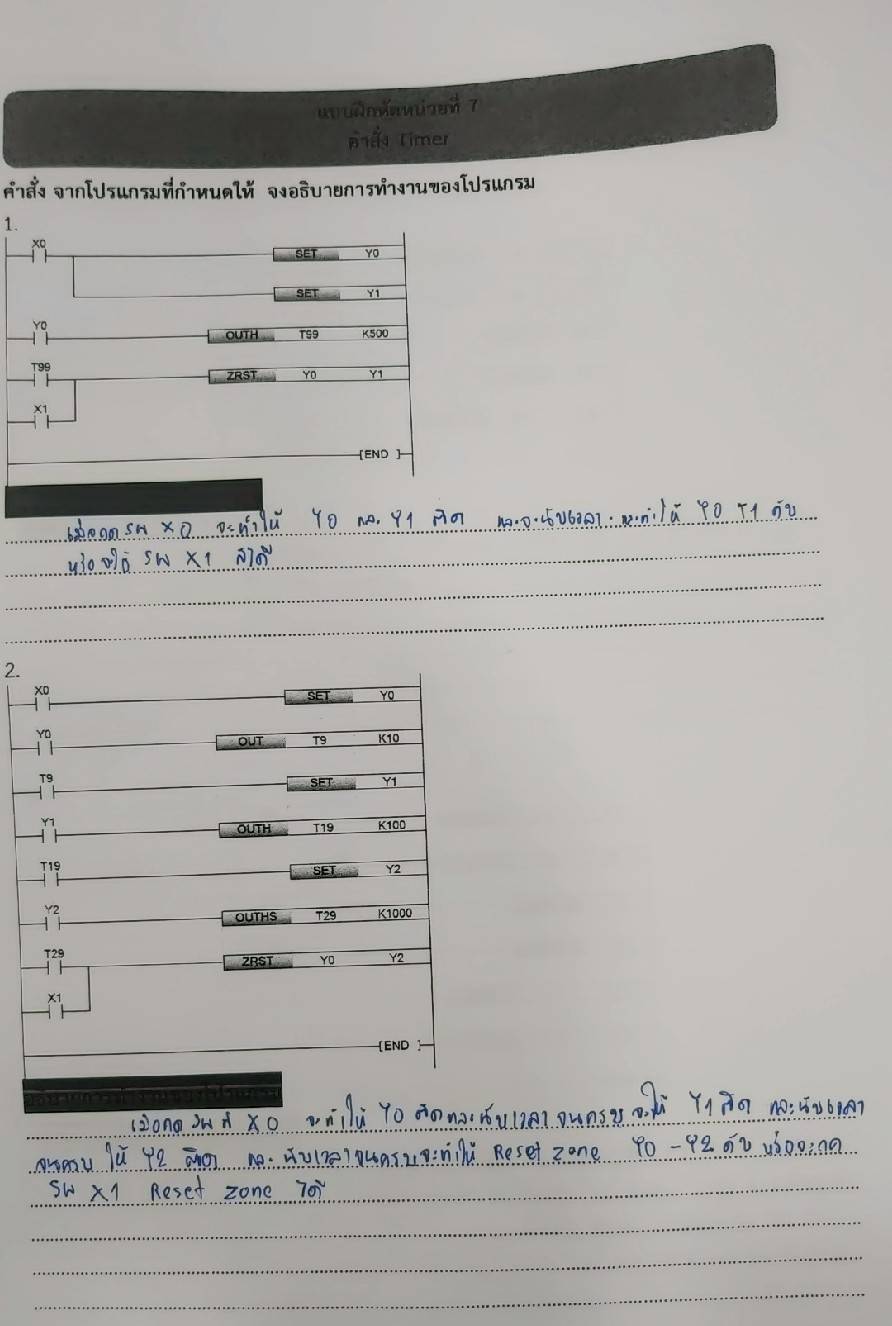 แบบฝึกหัดหน่วยที่ 7
คำสั่ง Timer
คำสั่ง จากโปรแกรมที่กำหนดให้ จงอธิบายการทำงานของโปรแกรม
1.
X0 SET Y0
SET Y1
Y0 OUTH T99 K500
T99 ZRST Y0 Y1
X1
[END ]
เมื่อกด SW X0 จะทำให้ Y0 และ Y1 ติด และจะนับเวลา จะทำให้ Y0 Y1 ดับ
หรือ SW X1 ก็ได้
2.
X0 SET Y0
Y0 OUT T9 K10
T9 SET Y1
Y1 OUTH T19 K100
T19 SET Y2
Y2 OUTHS T29 K1000
T29 ZRST Y0 Y2
X1
[END ]
เมื่อกด SW X0 จะทำให้ Y0 ติดและนับเวลาจนครบ Y1 ติด และนับเวลา
จนครบ ให้ Y2 ติด และนับเวลาจนครบจะทำให้ Reset zone Y0 - Y2 ดับ หรือจะกด
SW X1 Reset zone ได้